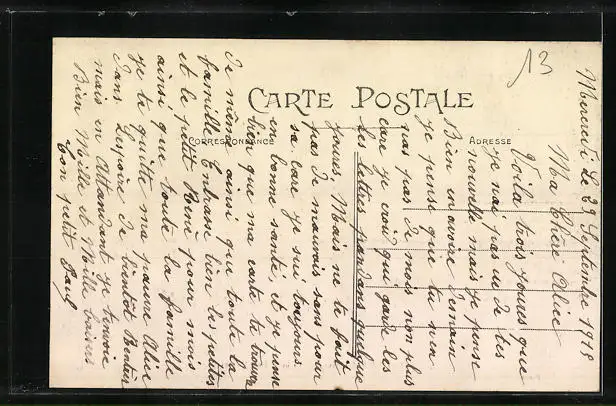 13
CARTE POSTALE
CORRESPONDANCE
ADRESSE
Mercredi Le 29 Septembre 1915
Ma Chère Alice
Voila trois jours que
je nai pas eu De tes
nouvelle mais je pense
Bien en avoire Demain
je pense que tu na
pas pas De mois non plus
care je croi que garde les
les lettres pendans quelque
joures. Mais ne te fait
pas De mauvais sans pour
sa care je sui toujours
en bonne santé, et je pense
bien que ma carte te trouve
De même ainsi que toute la
famille Enbrasse bien les petites
et le petit René pour mois
ainsi que toute la famille
Je te quitte ma pauvre Alice
Dans Lespoire De bientot
mais en Attandant je tenvoie
Bien Mille et Mille baisers
ton petit Paul